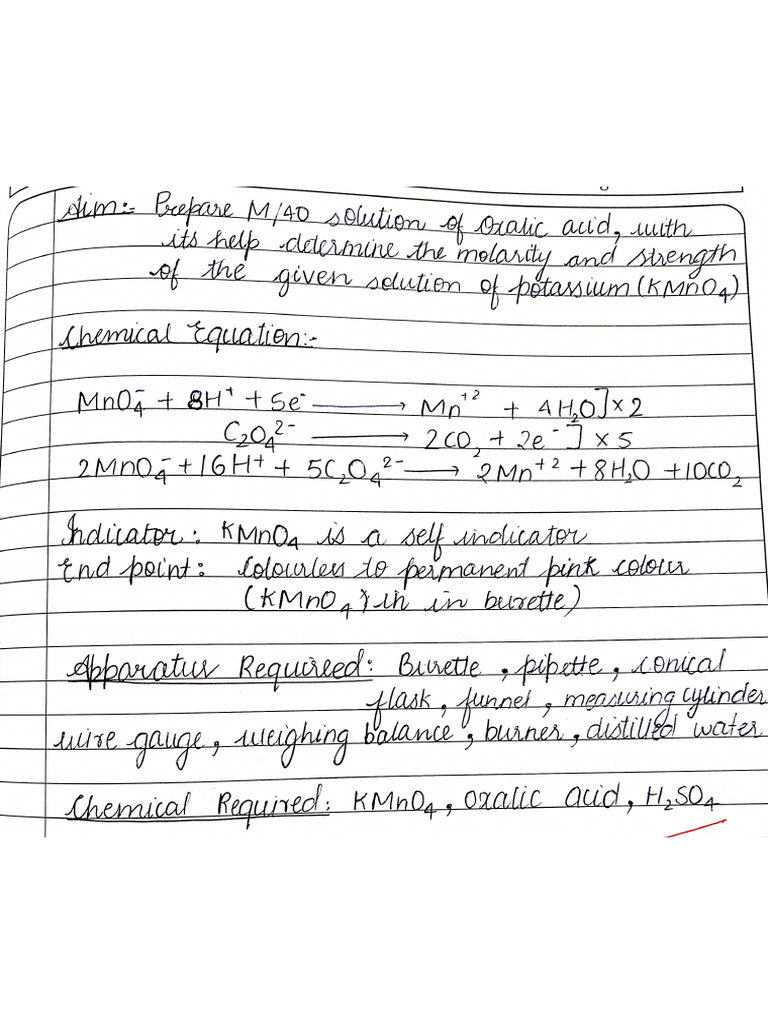 Aim:- Prepare M/40 solution of oxalic acid, with
its help determine the molarity and strength
of the given solution of potassium (KMnO4)
Chemical Equation:-
MnO4⁻ + 8H⁺ + 5e⁻ ⟶ Mn⁺² + 4H2O] × 2
C2O4²⁻ ⟶ 2CO2 + 2e⁻] × 5
2MnO4⁻ + 16H⁺ + 5C2O4²⁻ ⟶ 2Mn⁺² + 8H2O + 10CO2
Indicator: KMnO4 is a self indicator
End point: Colourless to permanent pink colour
(KMnO4 in in burette)
Apparatus Required: Burette, pipette, conical
flask, funnel, measuring cylinder
wire gauge, weighing balance, burner, distilled water
Chemical Required: KMnO4, oxalic acid, H2SO4